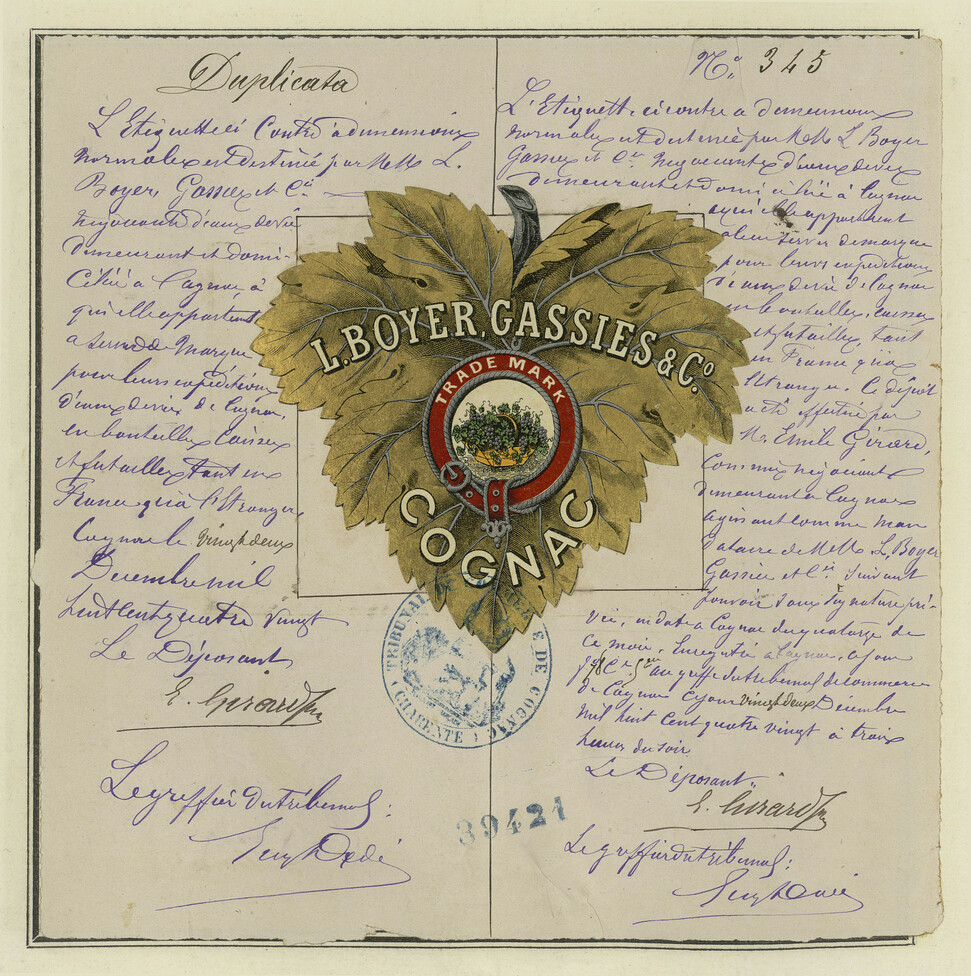 Duplicata
L'Etiquette ci Contre a dimensions
normales est destinée par MM. L.
Boyer, Gassies et Cie
négociants d'eaux de vie
demeurant et domi-
ciliés à Cognac à
qui elle appartient
a servir de Marque
pour leurs expéditions
d'eaux de vie de Cognac,
en bouteilles Caisses
et futailles tant en
France qu'à l'Etranger,
Cognac le vingt deux
Décembre mil
huit cent quatre vingt
Le Déposant
E. Girard
Le greffier du tribunal:
No. 345
L'Etiquette ci contre a dimensions
normales est destinée par MM. L. Boyer
Gassies et Cie Négociants d'eaux de vie
demeurant et domiciliés à Cognac
à qui elle appartient
a leur servir de marque
pour leurs expéditions
d'eaux de vie de Cognac
en bouteilles, caisses
et futailles, tant
en France qu'à
l'Etranger. Ce dépôt
a été effectué par
M. Emile Girard,
Commis négociant
demeurant à Cognac
agissant comme man
dataire de MM. L. Boyer
Gassies et Cie suivant
pouvoir sous signature pri-
vée, en date à Cognac du quatorze de
ce mois, Enregistré à Cognac, ce jour
au greffe du tribunal de commerce
de Cognac ce jour vingt deux Décembre
mil huit cent quatre vingt à trois
heures du soir
Le Déposant:
E. Girard
Le greffier du tribunal:
L. BOYER, GASSIES & Co
TRADE MARK
COGNAC
TRIBUNAL DE COGNAC
(CHARENTE)
39421